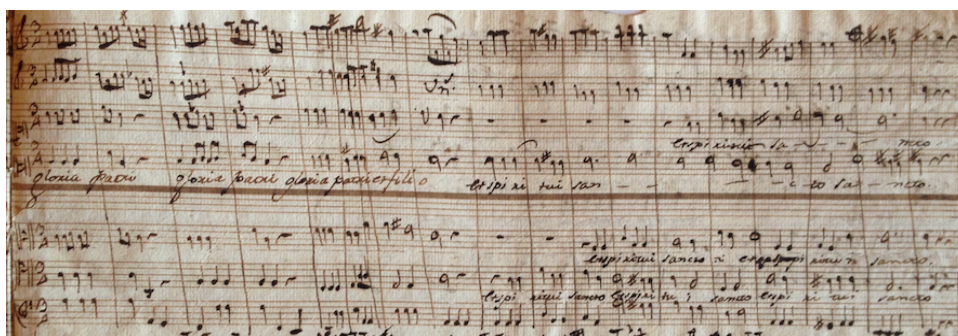 Vn.
et spiritui sa - - - ncto
gloria patri gloria patri gloria patri et filio et spiritui san - - - - cto sa - ncto.
et spiritui sancto et spiritui sancto.
et spiritui sancto et spiritui sancto et spiritui sancto